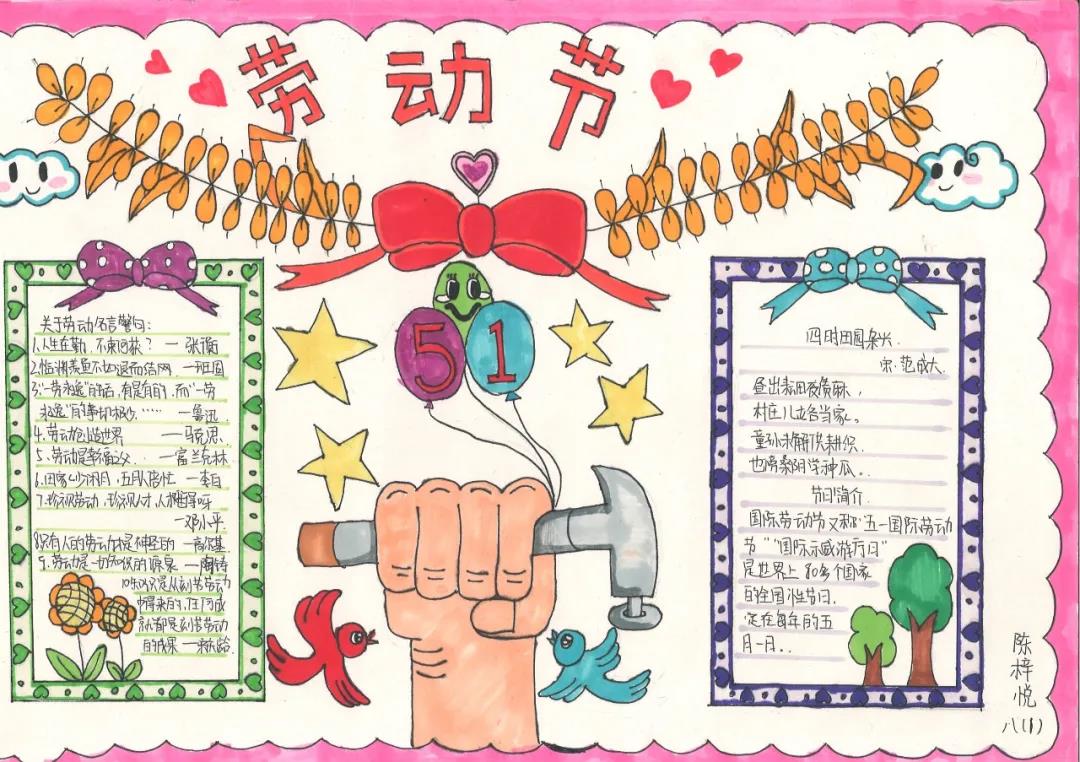 劳动节
51
关于劳动名言警句:
1.人生在勤,不索何获? — 张衡
2.临渊羡鱼不如退而结网. —班固
3."一劳永逸"的话,有是有的,而"一劳
永逸"的事却极少…… —鲁迅.
4.劳动创造世界 —马克思.
5.劳动是幸福之父... —富兰克林
6.田家少闲月,五月人倍忙 —李白
7.珍视劳动,珍视人才,人才难得呀
—邓小平.
8只有人的劳动才是神圣的 —高尔基
9.劳动是一切知识的源泉 —陶铸
10知识是从刻苦劳动
中得来的,任何成
就都是刻苦劳动
的成果 —宋庆龄
四时田园杂兴.
宋.范成大.
昼出耘田夜绩麻,
村庄儿女各当家。
童孙未解供耕织
也傍桑阴学种瓜..
节日简介.
国际劳动节又称"五一国际劳动
节""国际示威游行日"
是世界上80多个国家
的全国性节日.
定在每年的五
月一日..
陈梓悦
八(1)